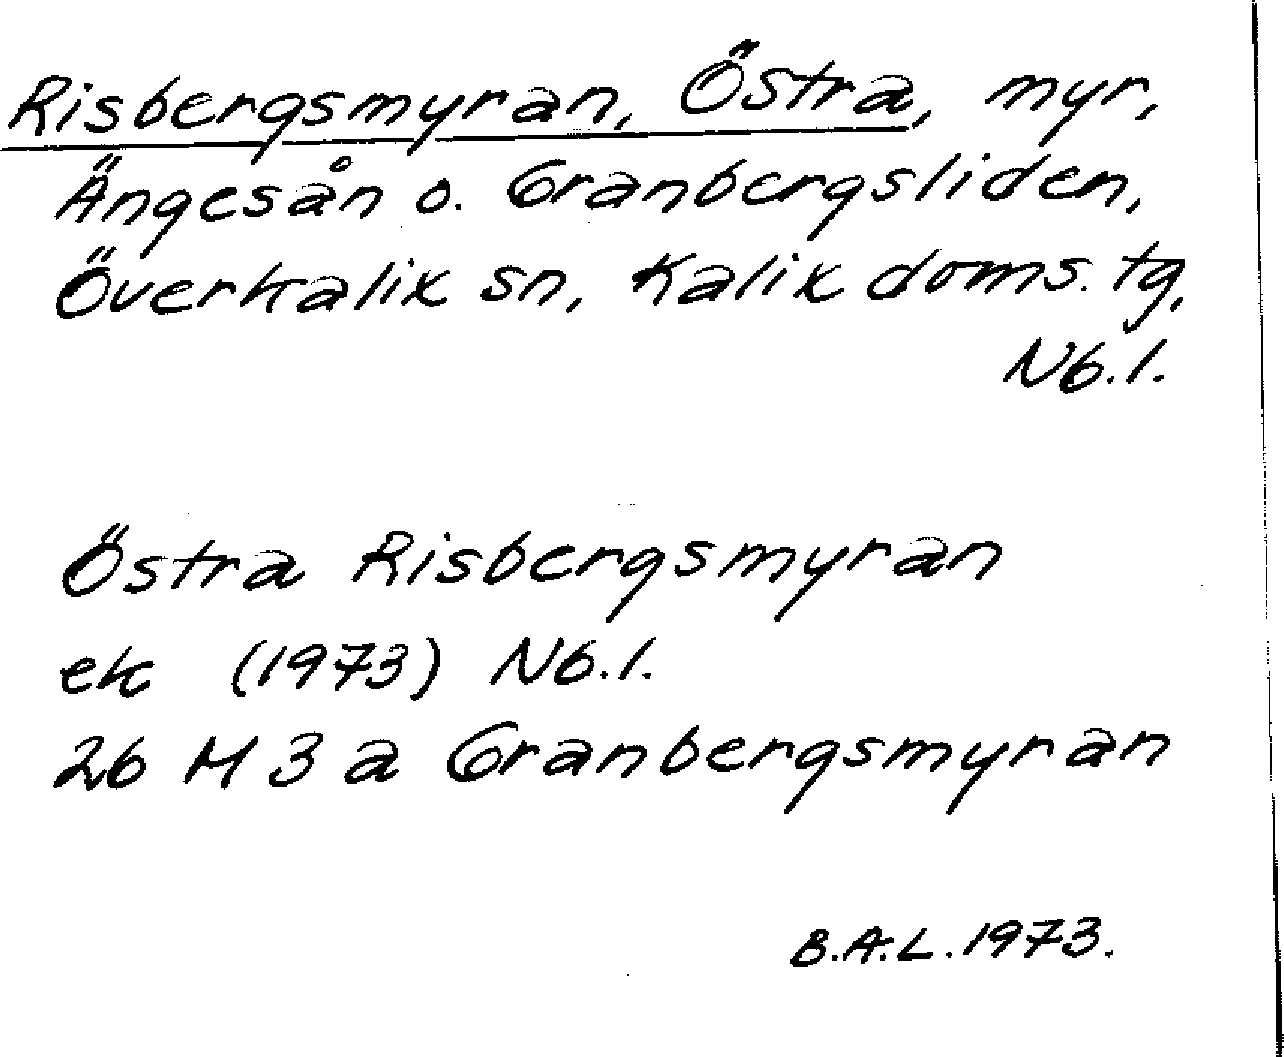 Risbergsmyran, Östra, myr,
Ängesån o. Granbergsliden,
Överkalix sn, Kalix doms. tg,
Nb. l.
Östra Risbergsmyran
ek (1973) Nb. l.
26 M 3 a Granbergsmyran
B.A.L. 1973.